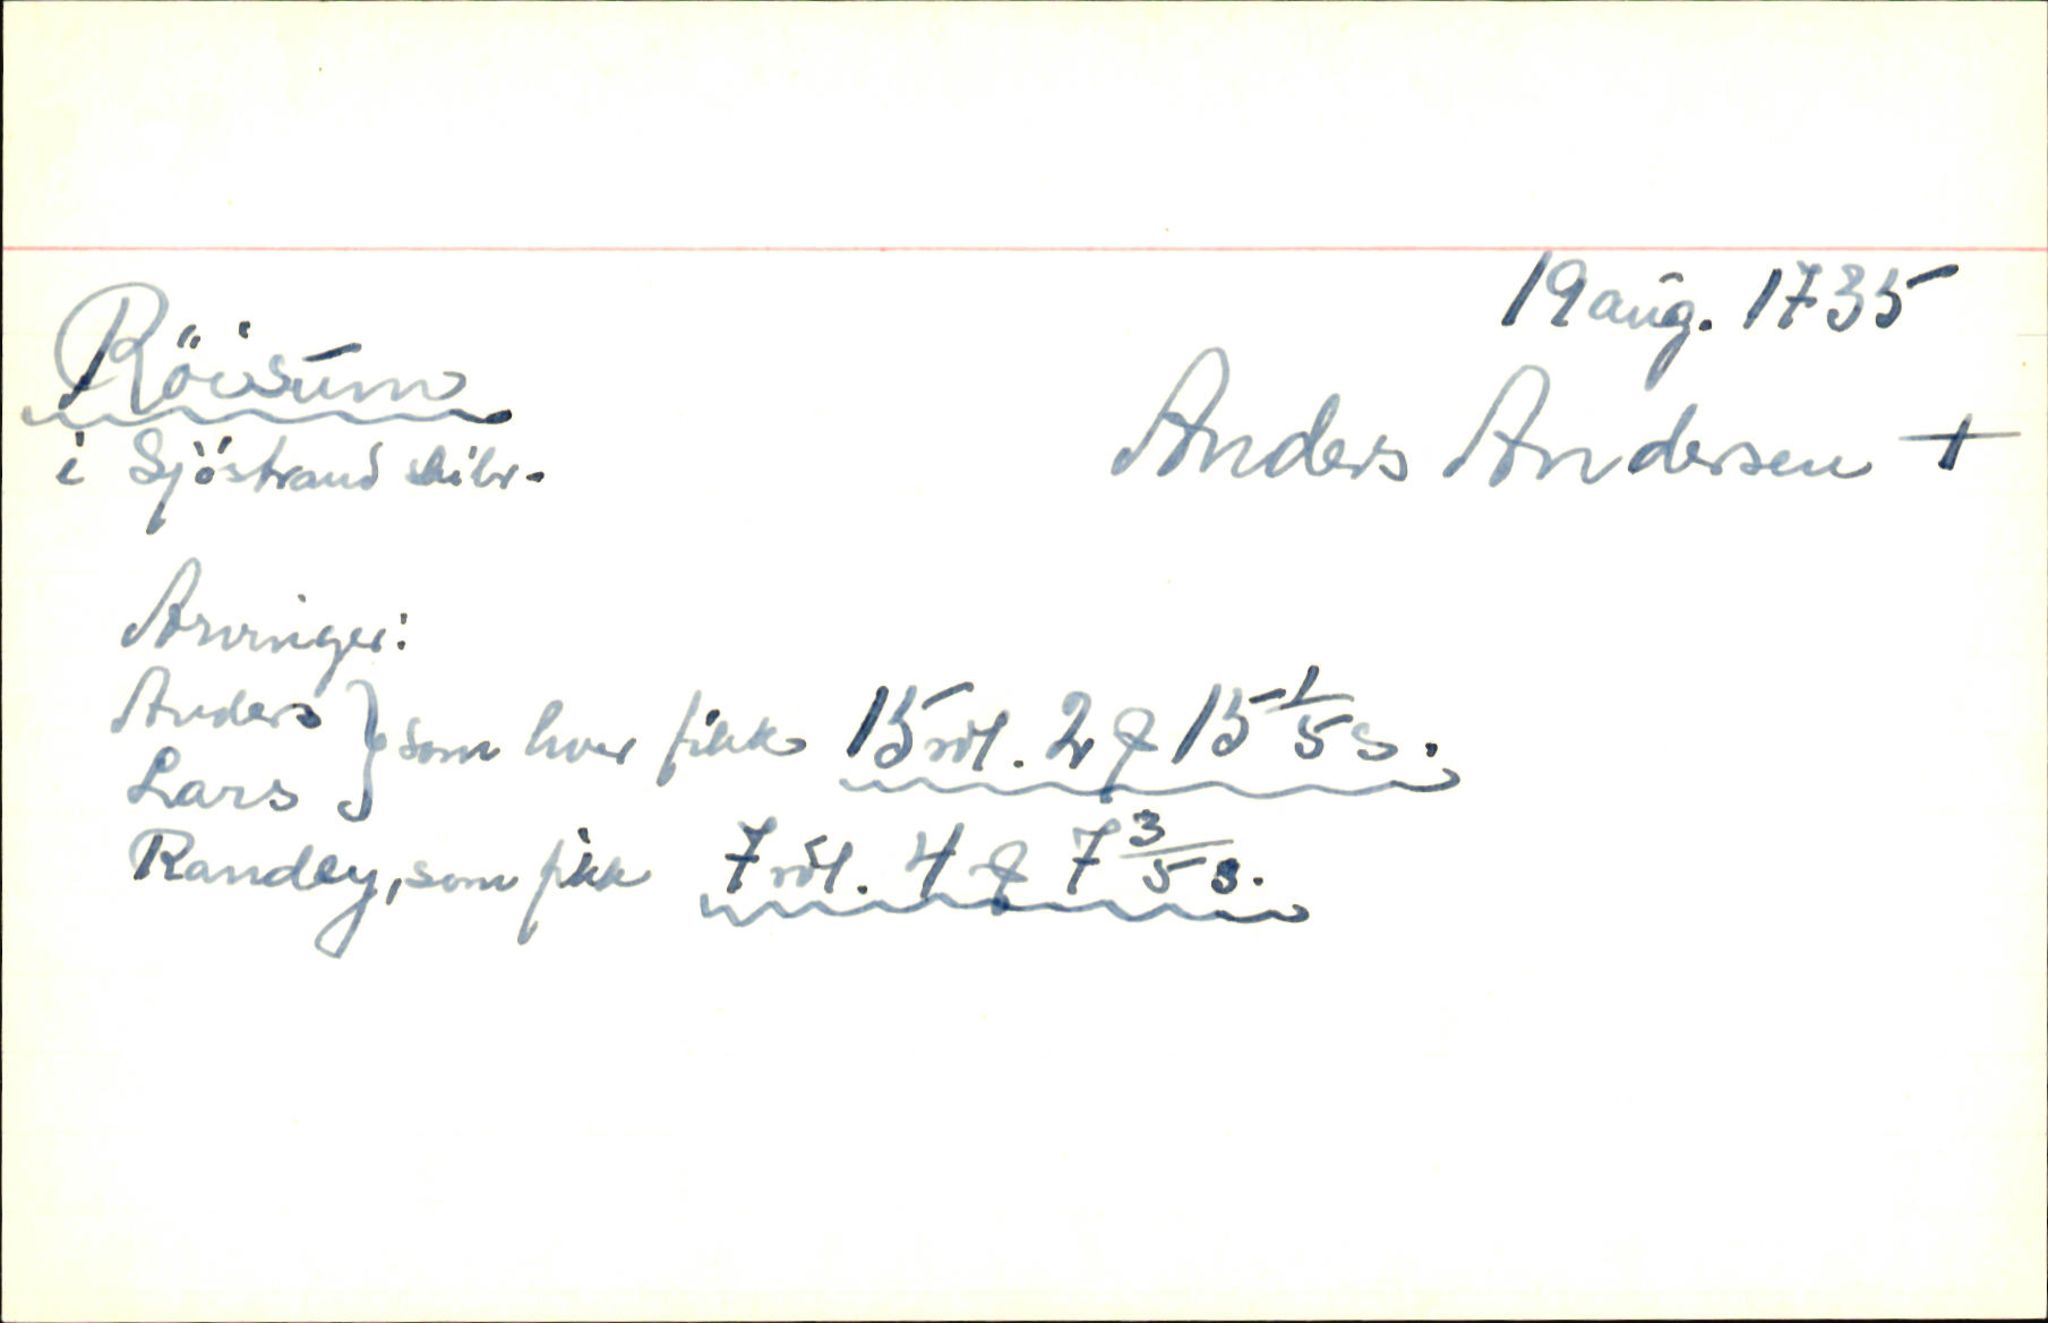 19 aug. 1735
Röisum
Anders Andersen +
i Sjöstrand skibr.
Arvinger:
Anders } som hver fikk 15 rdl. 2 q 15 1/5 s.
Lars
Randey, som fikk 7 rdl. 4 q 7 3/5 s.